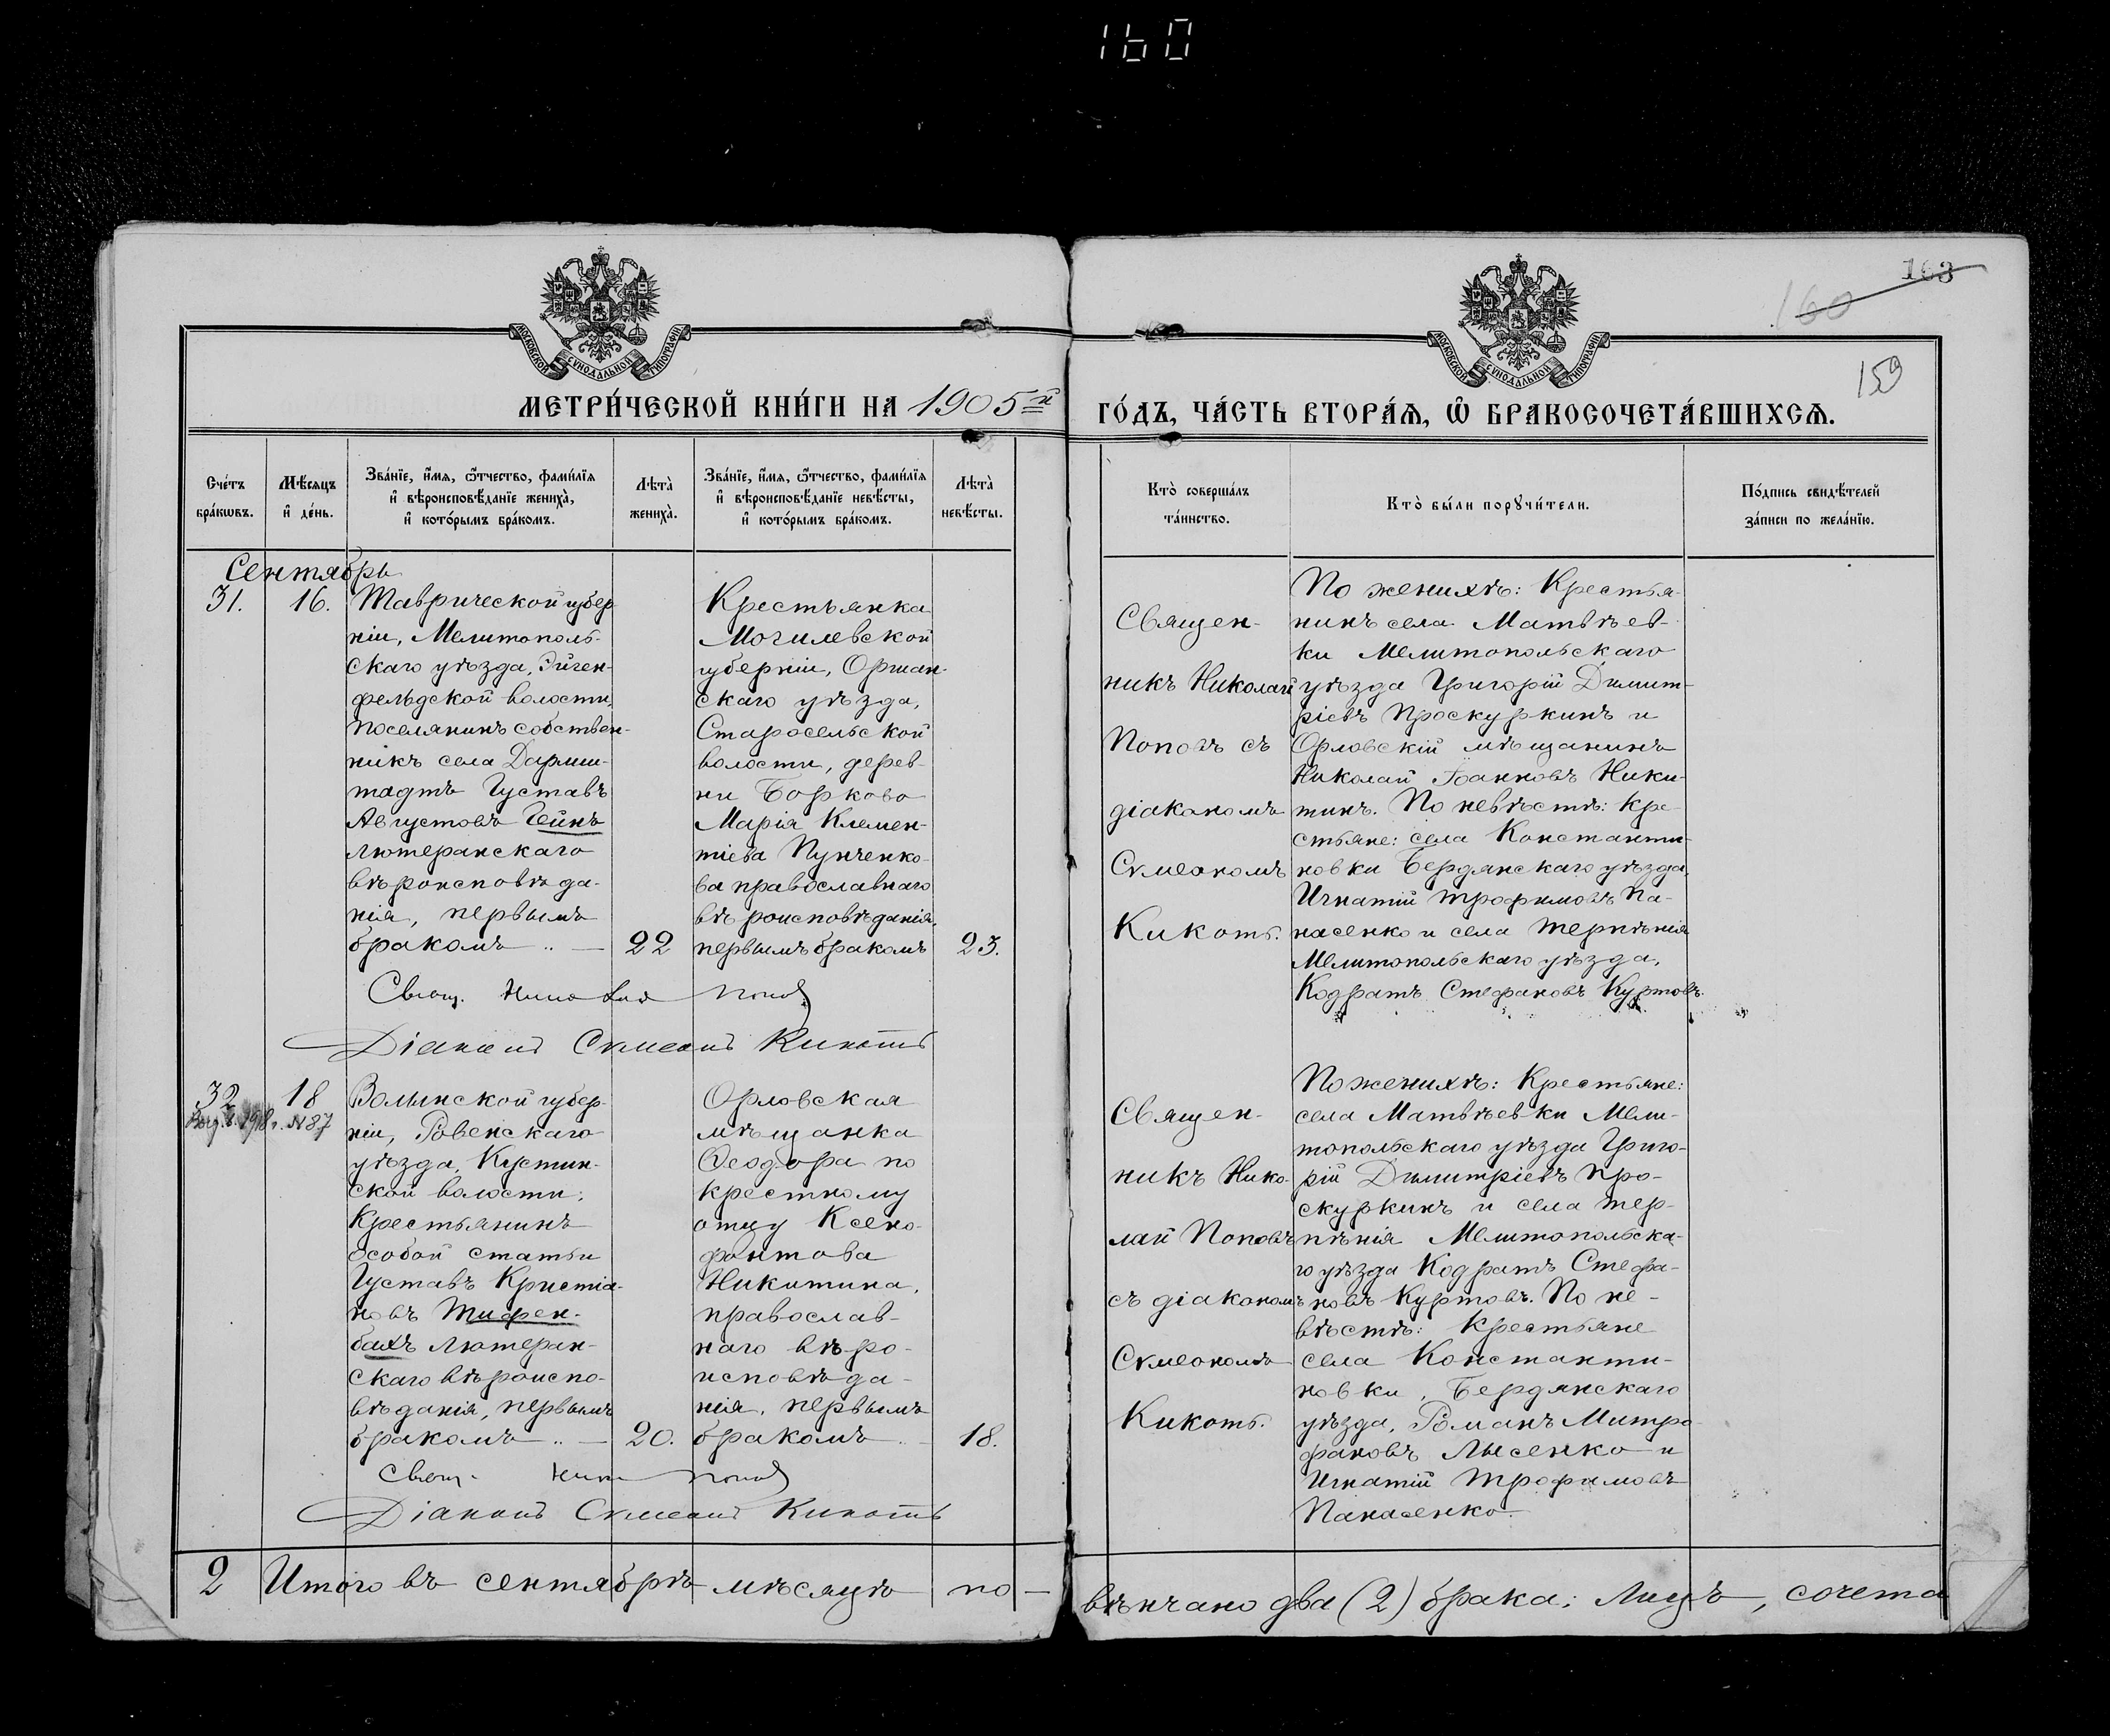 160
163
160
159
МОСКОВСКОЙ СУНОДАЛЬНОЙ ТИПОГРАФІИ
МОСКОВСКОЙ СУНОДАЛЬНОЙ ТИПОГРАФІИ
МЕТРИ́ЧЕСКОЙ КНИ́ГИ НА 1905й
ГО́ДЪ, ЧА́СТЬ ВТОРА́Ѧ, Ѡ҆ БРАКОСОЧЕТА́ВШИХСѦ.
Счетъ
бракѡвъ.
Мѣсяцъ
и день.
Званїе, имя, ѿчество, фамилїя
и вѣроисповѣданїе жениха,
и которымъ бракомъ.
Лѣта
жениха.
Званїе, имя, ѿчество, фамилїя
и вѣроисповѣданїе невѣсты,
и которымъ бракомъ.
Лѣта
невѣсты.
Кто совершалъ
таинство.
Кто были порꙋчители.
Подпись свидѣтелей
записи по желанїю.
Сентябрь
31.
16.
Таврической губер-
ніи, Мелитополь-
скаго уѣзда, Эйген-
фельдской волости,
поселянинъ собствен-
никъ села Дармш-
тадтъ Густавъ
Августовъ Гейнъ
лютеранскаго
вѣроисповѣда-
нія, первымъ
бракомъ „ —
22
Крестьянка
Могилевской
губерніи, Оршан-
скаго уѣзда,
Старосельской
волости, дерев-
ни Борково
Марія Клемен-
тіева Пунченко-
ва православнаго
вѣроисповѣданія,
первымъ бракомъ
23.
Священ-
никъ Николай
Поповъ съ
діакономъ
Сѵмеономъ
Кикоть.
По женихѣ: Крестья-
нинъ села Матвѣев-
ки Мелитопольскаго
уѣзда Григорій Димит-
ріевъ Проскуркинъ и
Орловскій мѣщанинъ
Николай Іоанновъ Ники-
тинъ. По невѣстѣ: кре-
стьяне: села Константи-
новки Бердянскаго уѣзда,
Игнатій Трофимовъ Па-
насенко и села Терпѣнія
Мелитопольскаго уѣзда,
Кодратъ Стефановъ Куртовъ.
Свящ. Николай Попов
Діаконъ Сѵмеонъ Кикоть
32
18
1918 г. N87
Волынской губер-
ніи, Ровенскаго
уѣзда, Кустин-
ской волости,
Крестьянинъ
особой статьи
Густавъ Кристіа-
новъ Тифен-
бахъ лютеран-
скаго вѣроиспо-
вѣданія, первымъ
бракомъ „ —
20.
Орловская
мѣщанка
Ѳеодора по
крестному
отцу Ксено-
фонтова
Никитина,
православ-
наго вѣро-
исповѣда-
нія, первымъ
бракомъ „ —
18.
Священ-
никъ Нико-
лай Поповъ
съ діакономъ
Сѵмеономъ
Кикоть.
По женихѣ: Крестьяне:
села Матвѣевки Мели-
топольскаго уѣзда Григо-
рій Димитріевъ Про-
скуркинъ и села Тер-
пѣнія Мелитопольска-
го уѣзда Кодратъ Стефа-
новъ Куртовъ. По не-
вѣстѣ: Крестьяне
села Константи-
новки, Бердянскаго
уѣзда, Романъ Митро-
фановъ Лысенко и
Игнатій Трофимовъ
Панасенко.
Свящ. Ник Попов
Діаконъ Сѵмеонъ Кикоть
2 Итого въ сентябрѣ мѣсяцѣ по-
вѣнчано два (2) брака; Лицъ, сочета